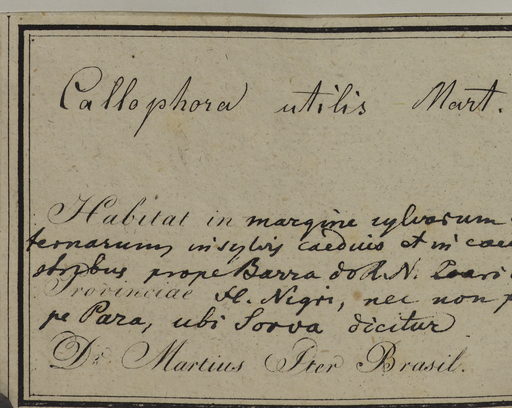 Callophora utilis Mart.
Habitat in margine sylvarum
ternarum, in sylvis caeduis et in cae
stribus prope Barra do R. N.
Provinciae fl. Nigri, nec non p
pe Para, ubi Sorva dicitur
Dr. Martius Iter Brasil.